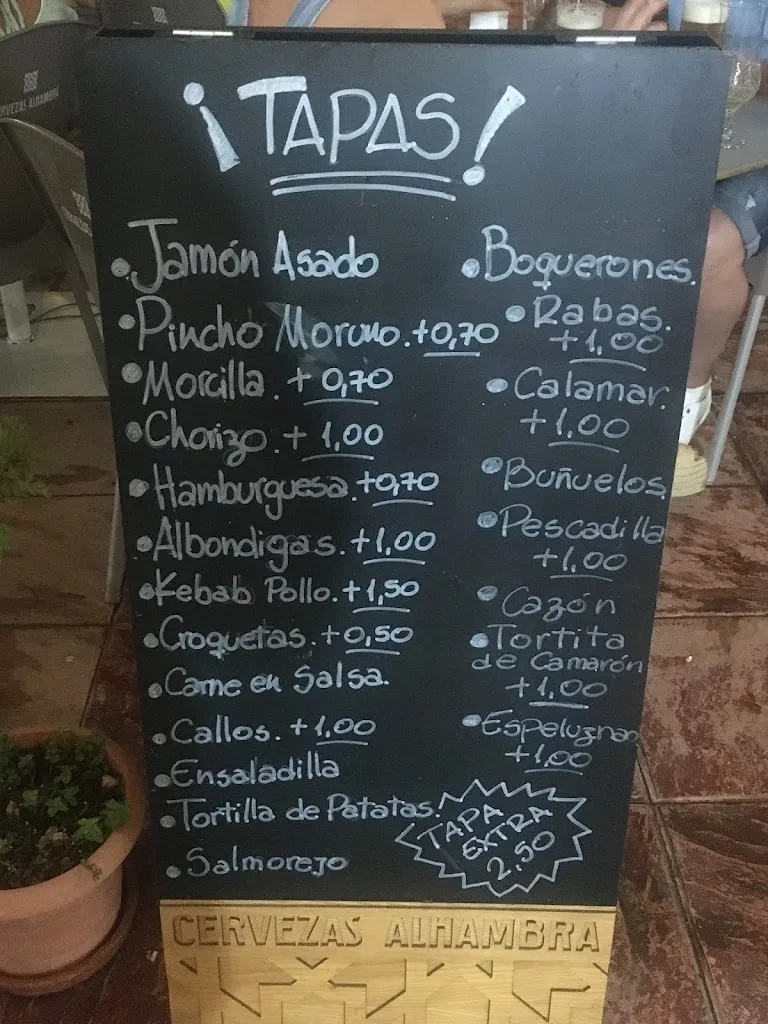 ¡TAPAS!
• Jamón Asado
• Pincho Moruno. +0,70
• Morcilla. + 0,70
• Chorizo. + 1,00
• Hamburguesa. +0,70
• Albondigas. +1,00
• Kebab Pollo. +1,50
• Croquetas. +0,50
• Carne en Salsa.
• Callos. +1,00
• Ensaladilla
• Tortilla de Patatas.
• Salmorejo
• Boquerones.
• Rabas.
+1,00
• Calamar.
+1,00
• Buñuelos
• Pescadilla
+1,00
• Cazón
• Tortita
de Camarón
+1,00
+1,00
TAPA
EXTRA
2,50
CERVEZAS ALHAMBRA
CERVEZAS ALHAMBRA